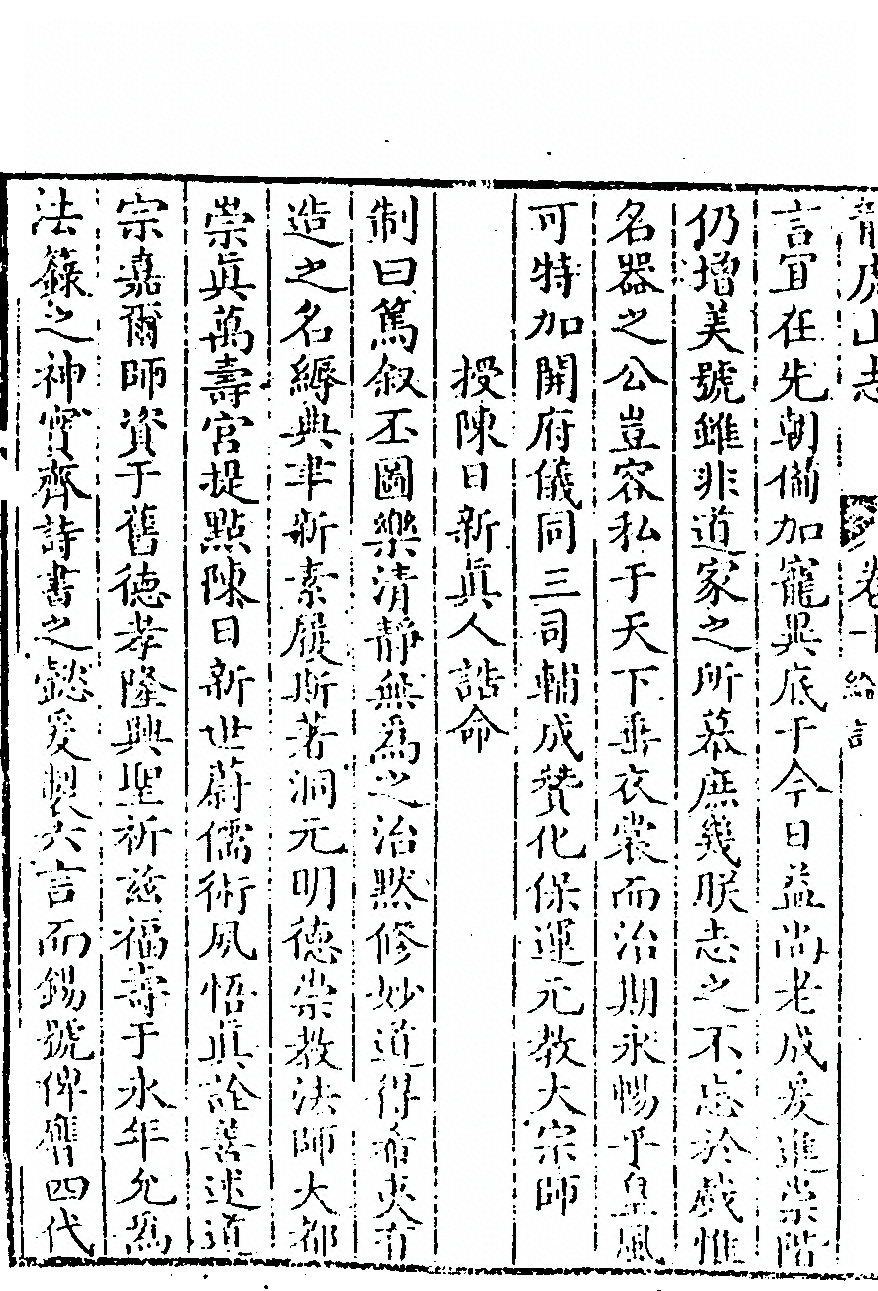 龍虎山志 卷十 綸言
言冝在先朝備加寵異底于今日益尚老成爰進崇階
仍增美號雖非道家之所慕庶幾朕志之不忘於戲惟
名器之公豈容私于天下垂衣裳而治期永暢乎皇風
可特加開府儀同三司輔成賛化保運元教大宗師
授陳日新眞人誥命
制曰篤叙丕圖樂清靜無爲之治黙修妙道得希夷有
造之名縟典聿新素履斯著洞元明德崇教法師大都
崇眞萬壽宫提點陳日新世蔚儒術夙悟眞詮善述道
宗嘉爾師資于舊德孝隆興聖祈兹福壽于永年允爲
法籙之神寳齊詩書之懿爰製六言而錫號俾膺四代